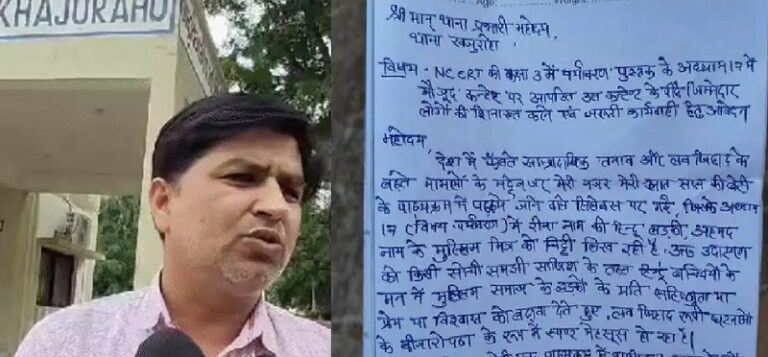 KHAJURAHO
श्री मान् थाना प्रभारी महोदय
थाना खजुराहो,
विषय - NCERT की कक्षा 3 में पर्यावरण पुस्तक के अध्याय 17 में
मौजूद कन्टेन्ट पर आपत्ति उस कन्टेन्ट के पीछे जिम्मेदार
लोगों की शिनाख्त करने एवं जरूरी कार्यवाही हेतु आवेदन
महोदय,
देश में फैलते साम्प्रदायिक तनाव और लव जिहाद के
बढ़ते मामलों के मद्देनजर मेरी नजर मेरी सात साल की बेटी
के पाठ्यक्रम में पढ़ाये जाने वाले सिलेबस पर गई जिसके अध्याय
17 (विषय पर्यावरण) में रीना नाम की हिन्दू लड़की, अहमद
नाम के मुस्लिम मित्र को चिट्ठी लिख रही है, उक्त उदाहरण
को किसी सोची समझी साजिश के तहत हिन्दू बच्चियों के
मन में मुस्लिम समाज के लड़कों के प्रति
प्रेम या विश्वास को बढ़ावा देते हुए, लव जिहाद रूपी
के बीजारोपण के रूप में स्पष्ट महसूस हो रहा है।